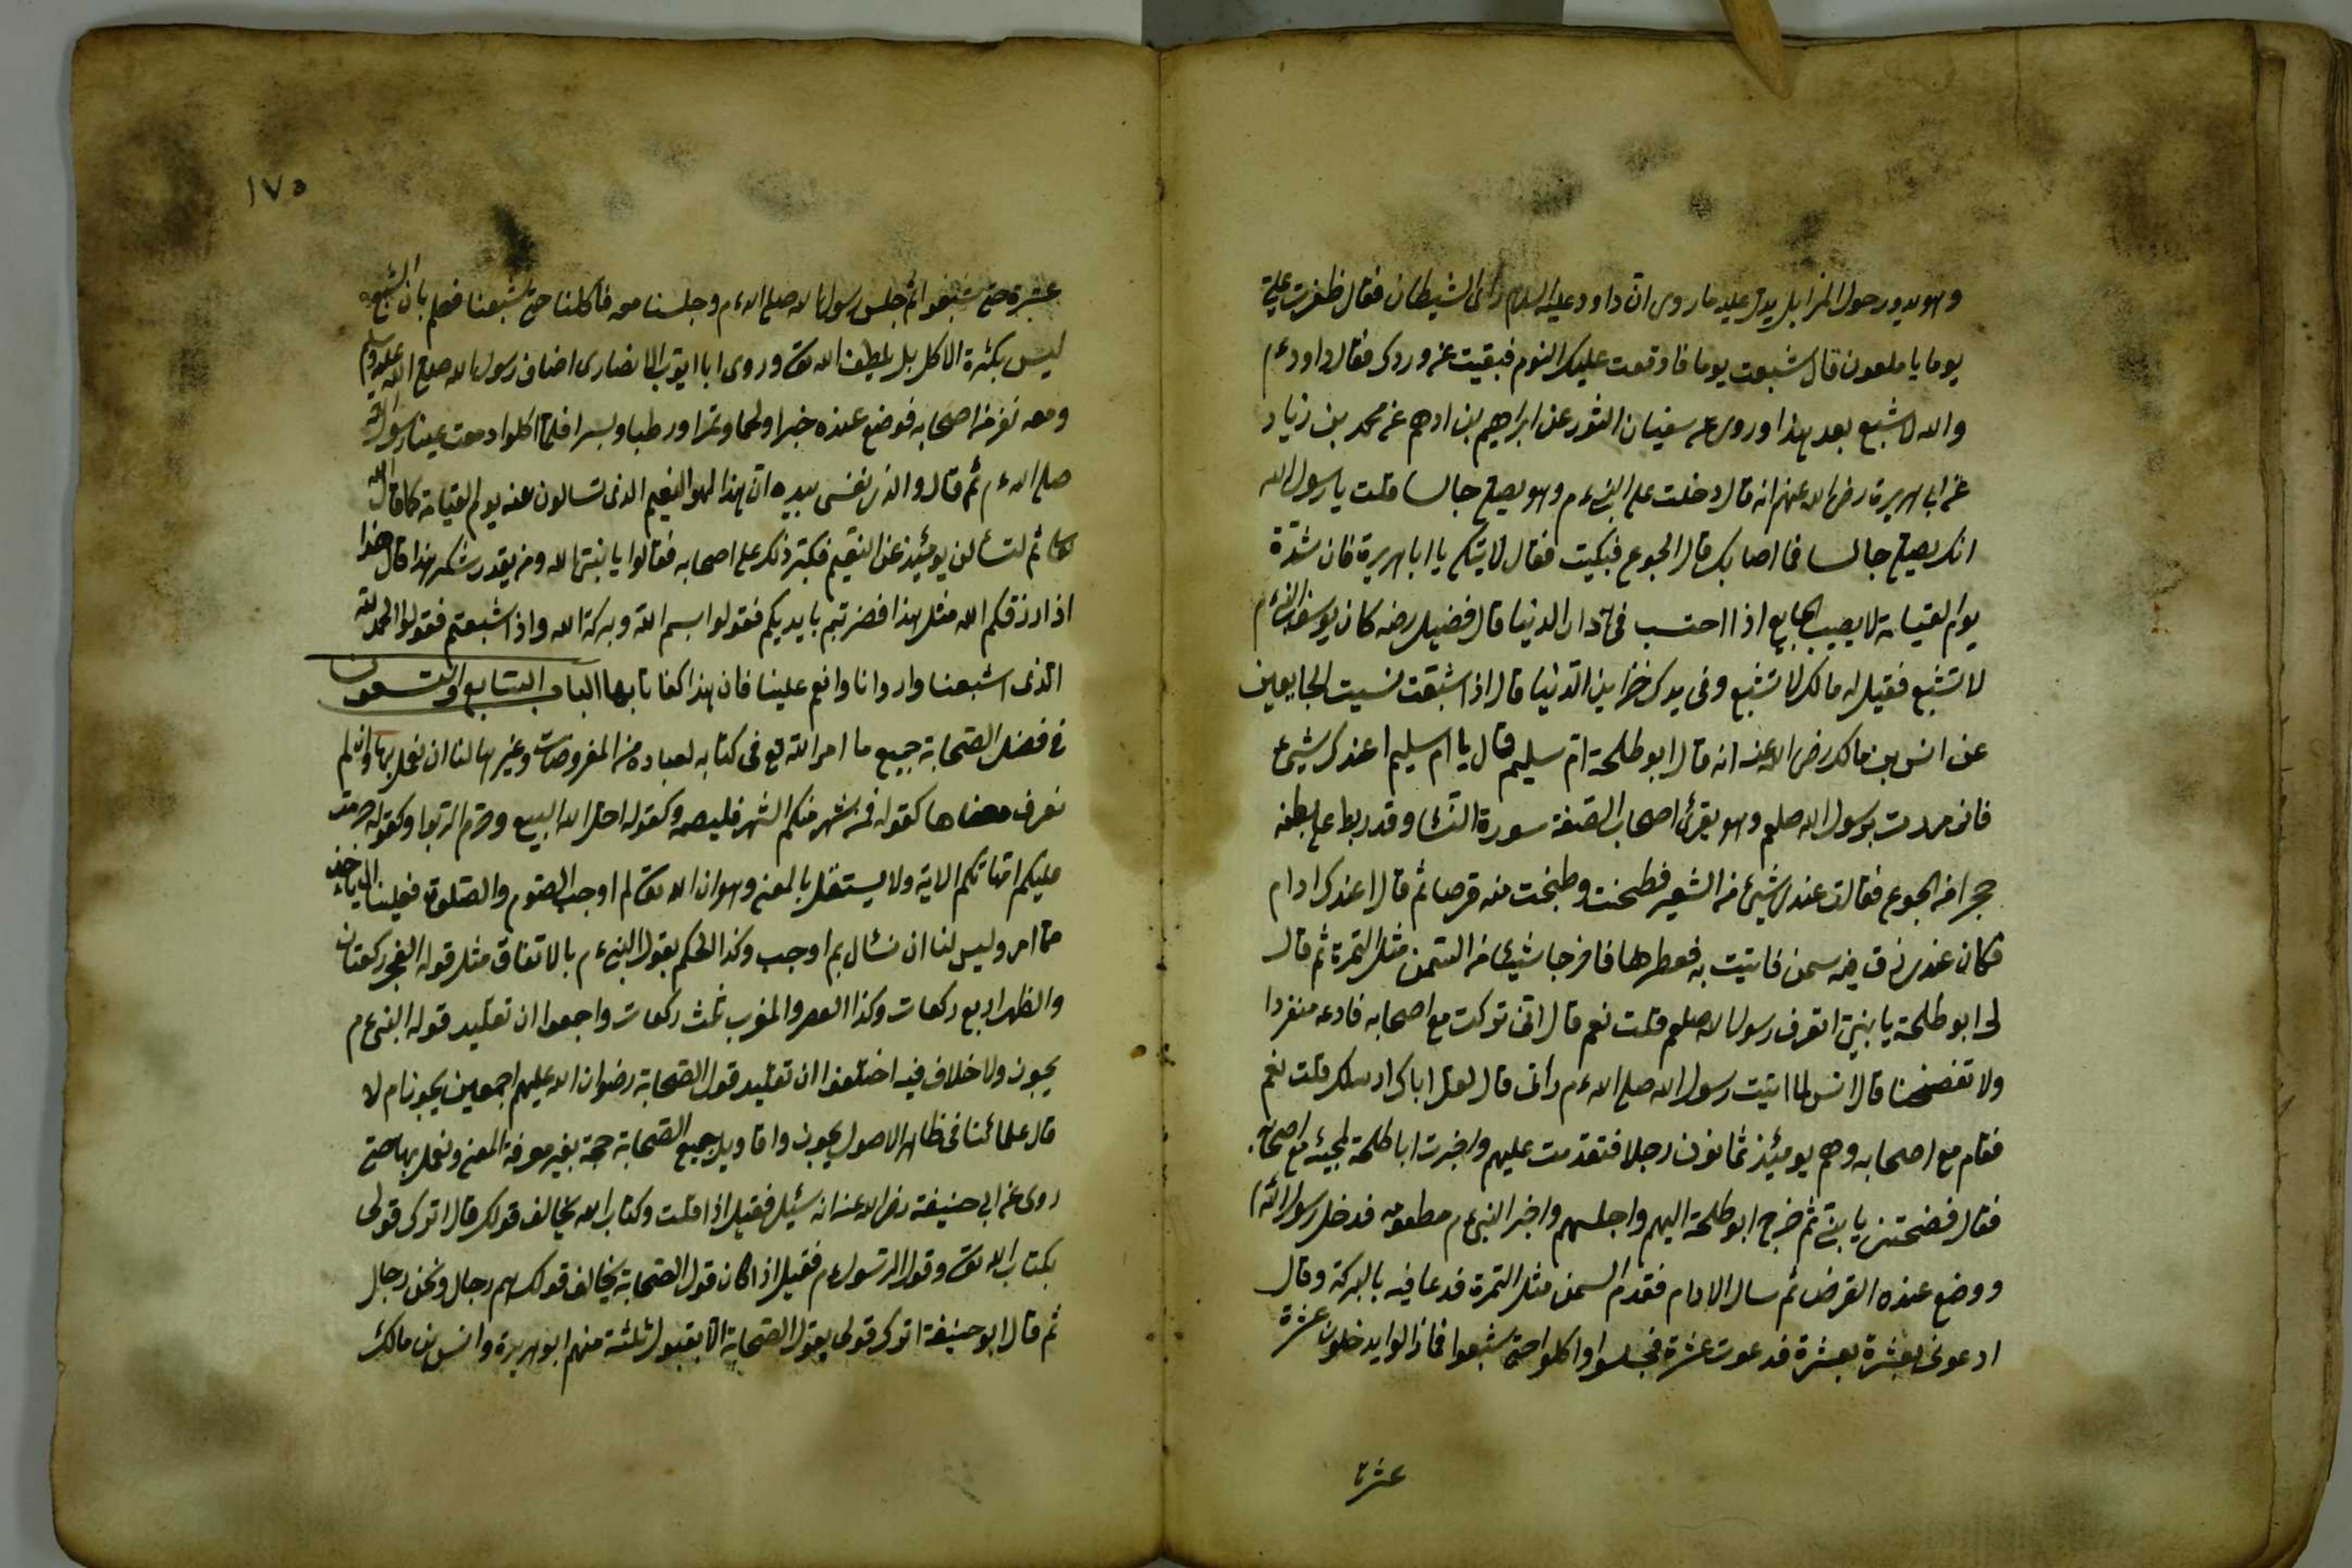 وهو يدور حول المزابل يدل عليه ما روى ان داود عليه السلام راى الشيطان فقال ظفرت علي
يوما يا ملعون قال شبعت يوما فاوقعت عليك النوم فبقيت عن وردك فقال داود ءم
والله لا شبع بعد هذا وروى عن سفيان الثور عن ابراهيم بن ادهم عن محمد بن زياد
عن ابي هريرة رضى الله عنهم انه قال دخلت على النبي ءم وهو يصلي جالسا قلت يا رسول الله
انك يصلي جالسا فما اصابك قال الجوع فبكيت فقال لا تبك يا ابا هريرة فان شدة
يوم القيامة لا يصيب الجايع اذا احتسب في دار الدنيا قال فضيل رضه كان يوسف النبي ءم
لا تشبع فقيل له مالك لا تشبع وفى يدك خزاين الدنيا قال اذا شبعت نسيت الجايعين
عن انس بن مالك رضى الله عنه انه قال ابو طلحة ام سليم قال يا ام سليم اعندك شيئ
فانى مررت برسول الله صلعم وهو يقرئ اصحاب الصفة سورة النسا وقد ربط على بطنه
حجرا من الجوع فقالت عندى شيئ من الشعير فطحنت وطبخت منه قرصا ثم قال اعندك ادام
فكان عندى زق فيه سمن فاتيت به فعطرها فاخرجا شيئا من السمن مثل التمرة ثم قال
لى ابو طلحة يا بني اتعرف رسول الله صلعم قلت نعم قال اتى تركت مع اصحابه فادعه منفردا
ولا تفضحنا قال انس لما اتيت رسول الله صلى الله ءم راى قال لعل اباك ارسلك قلت نعم
فقام مع اصحابه وهم يومئذ ثمانون رجلا فتقدمت عليهم واخبرت ابا طلحة لمجيئه مع اصحابه
فقال فضحتنى يا بنى ثم خرج ابو طلحة اليهم واجلسهم واخبر النبي ءم فدخل رسول الله
ووضع عنده القرص ثم سال الادام فقدم السمن مثل التمرة فدعا فيه بالبركة وقال
ادعونى بعشرة بعشرة فدعوت عشرة فجلسوا واكلوا حتى شبعوا فما زالوا يدخلون عشرة
عشرة
١٧٥
عشرة حتى شبعوا ثم جلس رسول الله صلى الله ءم وجلسنا معه فاكلنا حتى شبعنا فعلم بان الشبع
ليس بكثرة الاكل بل بلطيف الله تعالى وروى ابا ايوب الانصارى اضاف رسول الله صلى الله عليه وسلم
ومعه نفر من اصحابه فوضع عنده خبزا ولحما وتمرا ورطبا وبسرا فلما اكلوا دمعت عينا رسول الله
صلى الله ءم ثم قال والذى نفسى بيده ان هذا لهو النعيم الذى تسالون عنه يوم القيامة كما قال الله
تعالى ثم لتسألن يومئذ عن النعيم فكبر ذلك على اصحابه فقالوا يا نبى الله ومن يقدر شكر هذا قال هذا
اذا ارزقكم الله مثل هذا فضربتم بايديكم فقولوا بسم الله وبركة الله واذا شبعتم فقولوا الحمد لله
الذى اشبعنا واروانا وانعم علينا فان هذا كفانا بها الباب السابع والتسعون
في فضل الصحابة جميع ما امر الله تع في كتابه لعباده من المفروضات وغيرها لنا ان نعمل بها وان لم
نعرف معناها كقوله فمن شهد منكم الشهر فليصمه وكقوله احل الله البيع وحرم الربوا وكقوله حرمت
عليكم امهاتكم الاية ولا يستغل بالمعنى وهو ان الله تعالى لم اوجب الصوم والصلوة فعلينا الى ياخذ
مما امر وليس لنا ان نسأل بم اوجب وكذا الحكم بقول النبي ءم بالاتفاق مثل قوله الفجر ركعتان
والظهر اربع ركعات وكذا العصر والمغرب ثلث ركعات واجمعوا ان تقليد قوله النبي ءم
يجوز ولا خلاف فيه اختلفوا ان تقليد قول الصحابة رضوان الله عليهم اجمعين يجوز ام لا
قال علمائنا في ظاهر الاصول يجوز واقاويل جميع الصحابة حجة بغير معرفة المعنى ونعمل بها حتى
روى عن ابى حنيفة رضى الله عنه انه سئيل فقيل اذا قلت وكتاب الله يخالف قولك قال اترك قولى
بكتاب الله تعالى وقول الرسول ءم فقيل اذا كان قول الصحابة يخالف قولك هم رجال ونحن رجال
ثم قال ابو حنيفة اترك قولى بقول الصحابة الا بقبول ثلثة منهم ابو هريرة وانس بن مالك